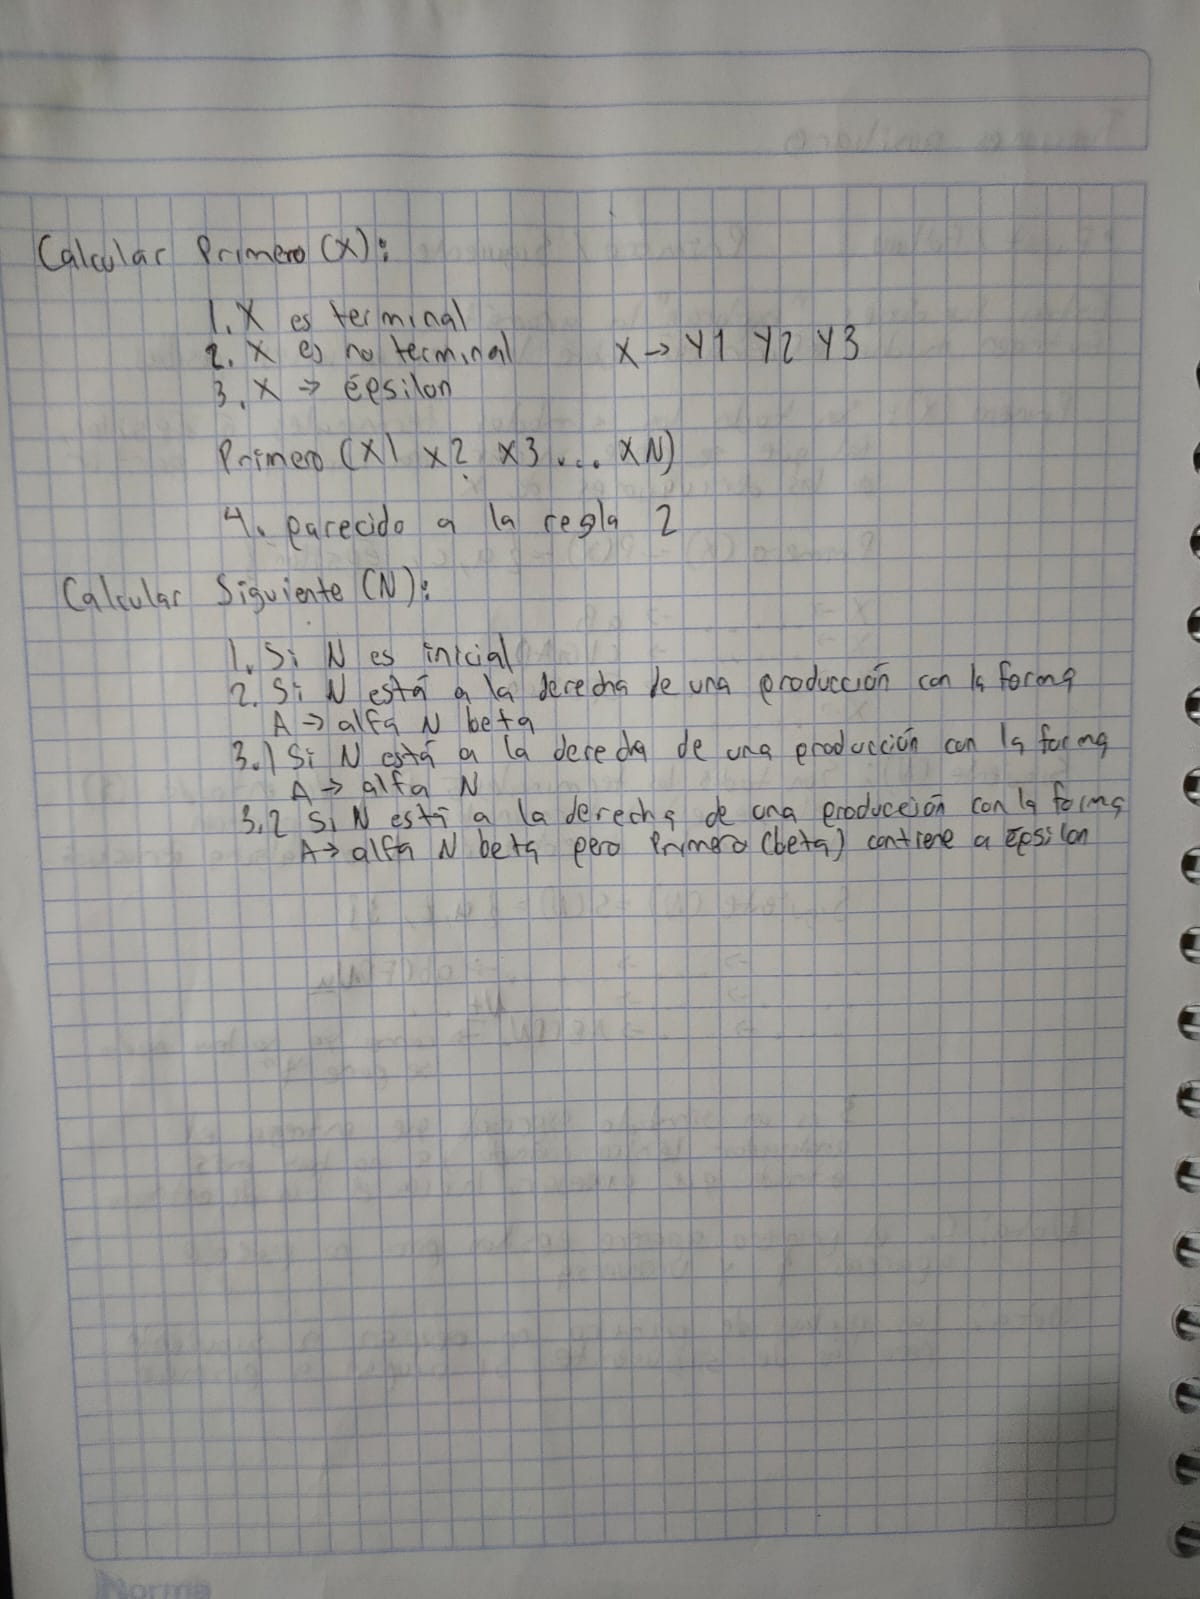 Calcular Primero (X):
1. X es terminal
2. X es no terminal X → Y1 Y2 Y3
3. X → épsilon
Primero (X1 X2 X3... XN)
4. parecido a la regla 2
Calcular Siguiente (N):
1. Si N es inicial
2. Si N está a la derecha de una producción con la forma
A → alfa N beta
3.1 Si N está a la derecha de una producción con la forma
A → alfa N
3.2 Si N está a la derecha de una producción con la forma
A → alfa N beta pero Primero (beta) contiene a épsilon
Norma